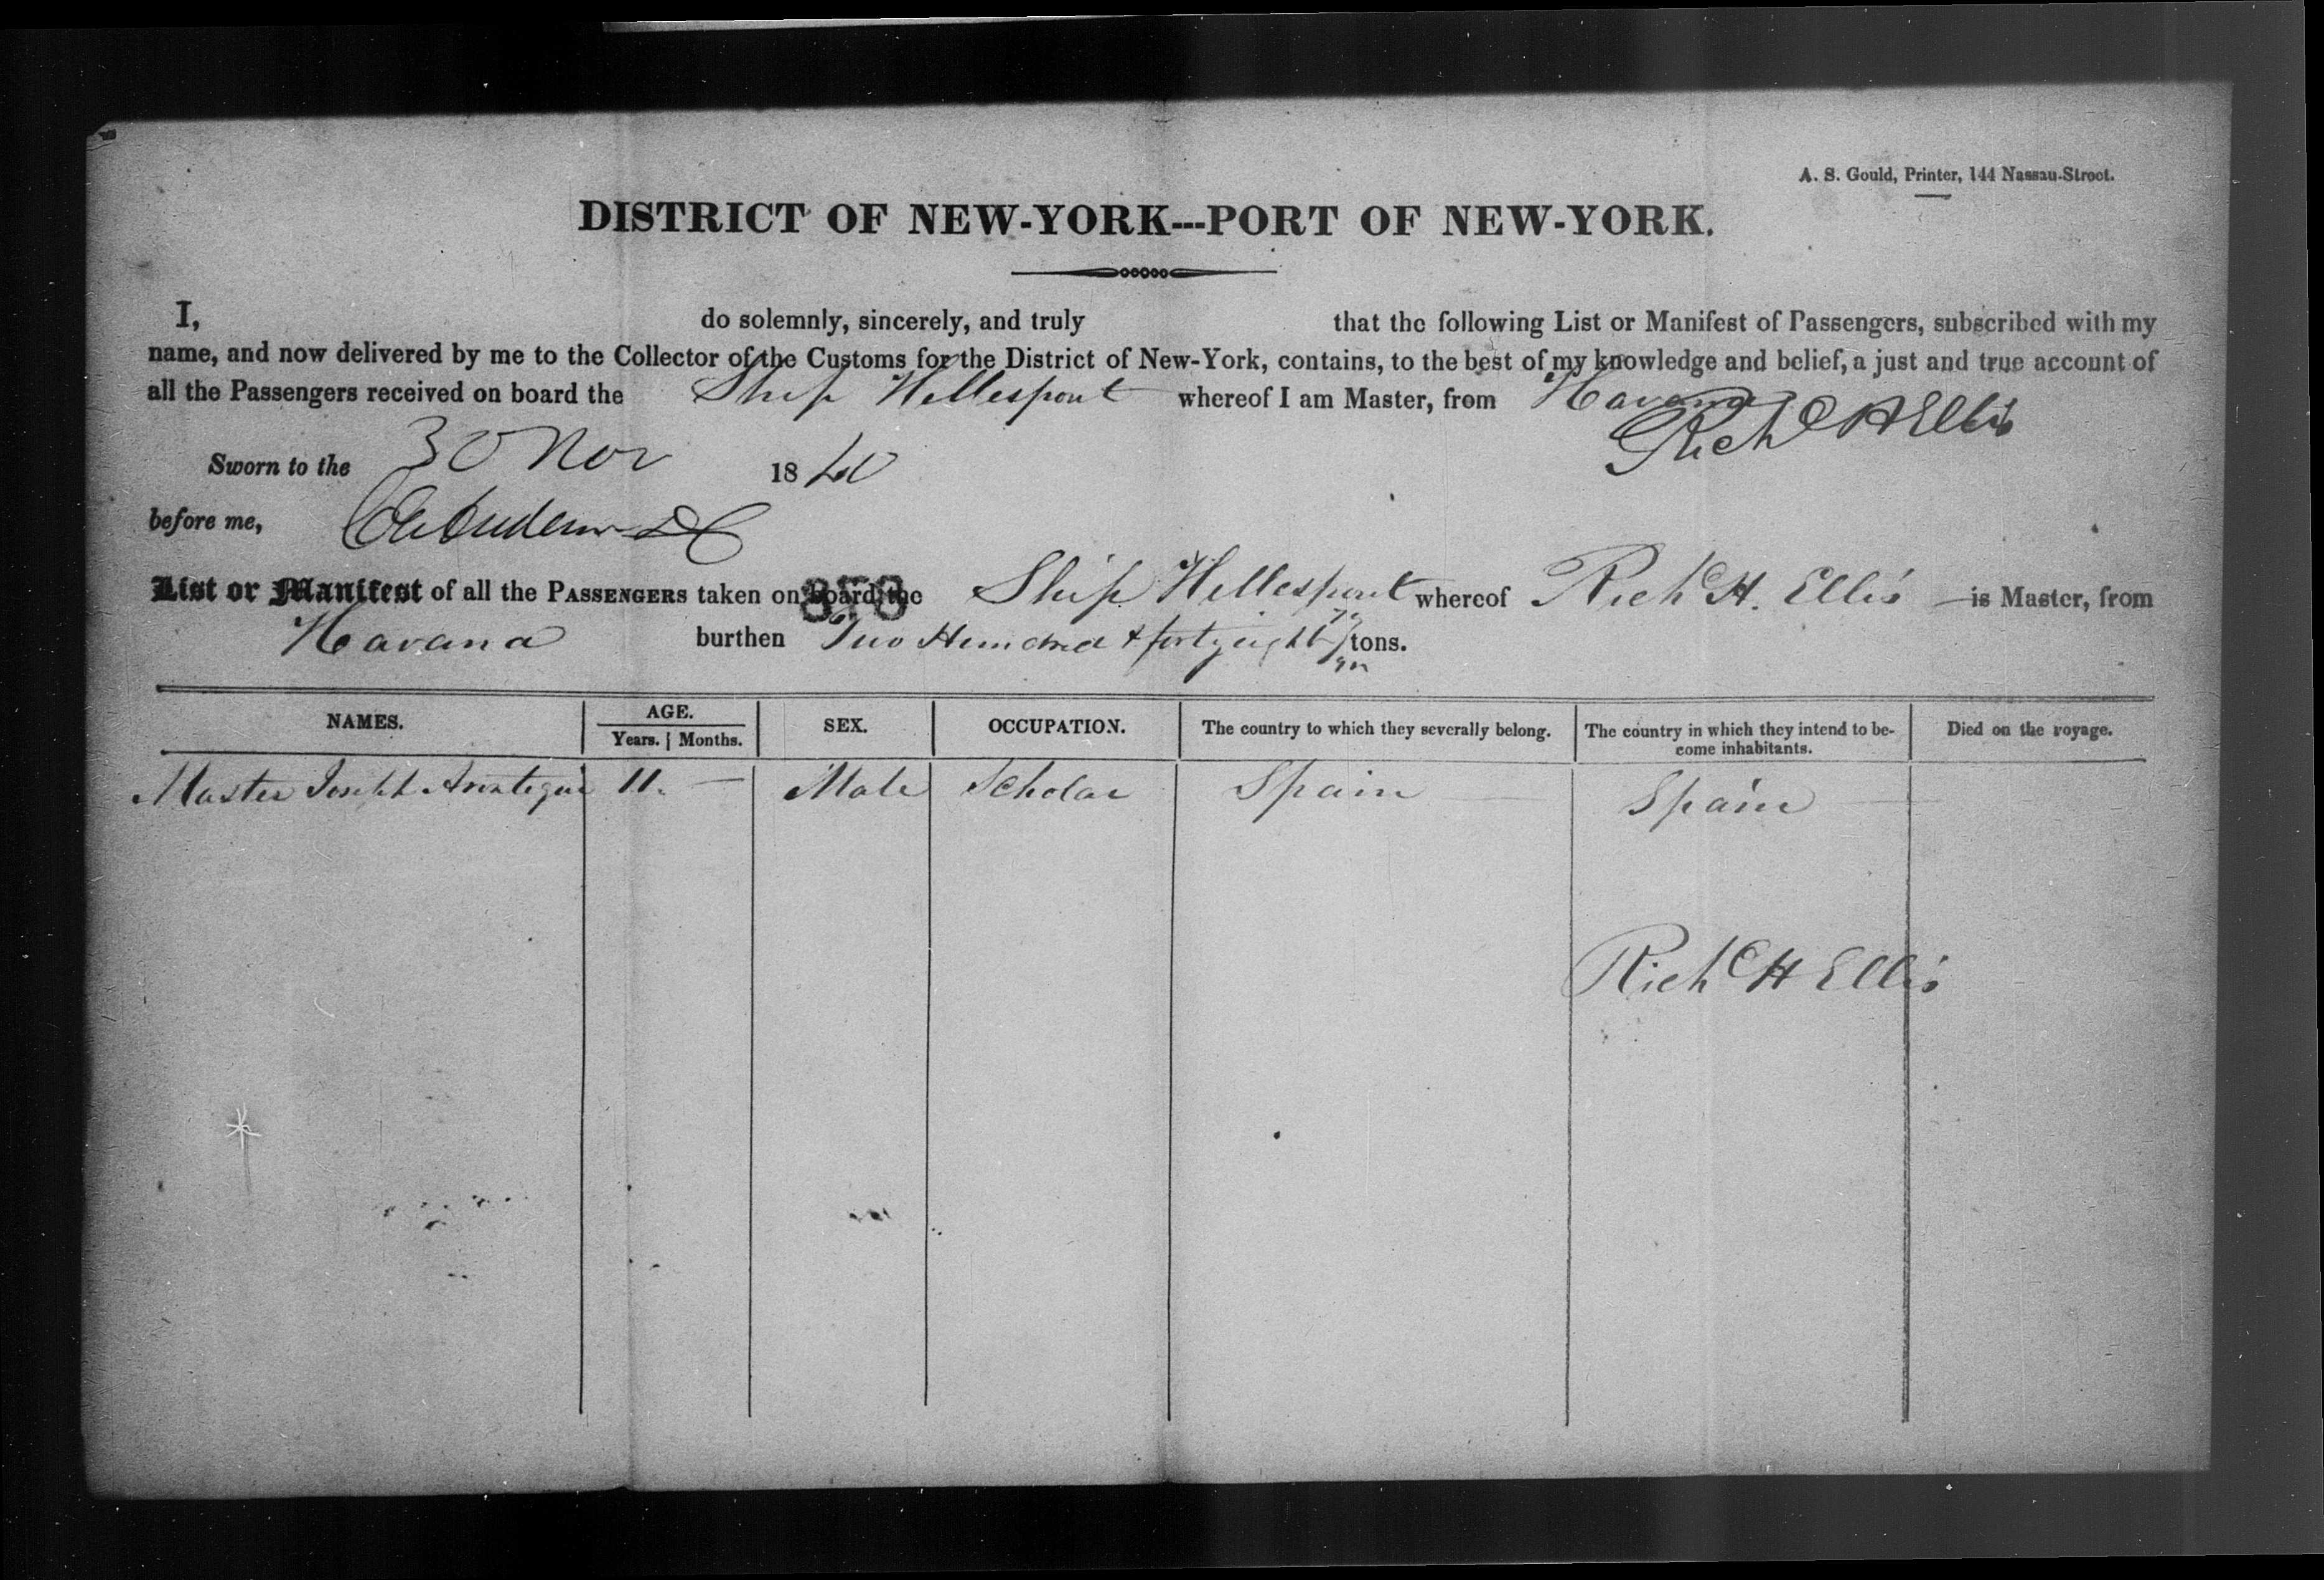 A. S. Gould, Printer, 144 Nassau-Street.
DISTRICT OF NEW-YORK---PORT OF NEW-YORK.
I, do solemnly, sincerely, and truly that the following List or Manifest of Passengers, subscribed with my
name, and now delivered by me to the Collector of the Customs for the District of New-York, contains, to the best of my knowledge and belief, a just and true account of
all the Passengers received on board the Ship Hellespont whereof I am Master, from Havana
Rich^d H Ellis
Sworn to the 30 Nov 1840
before me, DC
List or Manifest of all the PASSENGERS taken on board the Ship Hellespont whereof Rich^d H. Ellis is Master, from
Havana burthen Two Hundred & forty eight tons.
NAMES. AGE. Years. Months. SEX. OCCUPATION. The country to which they severally belong. The country in which they intend to become inhabitants. Died on the voyage.
Master Joseph 11. — Male Scholar Spain Spain
Rich^d H Ellis